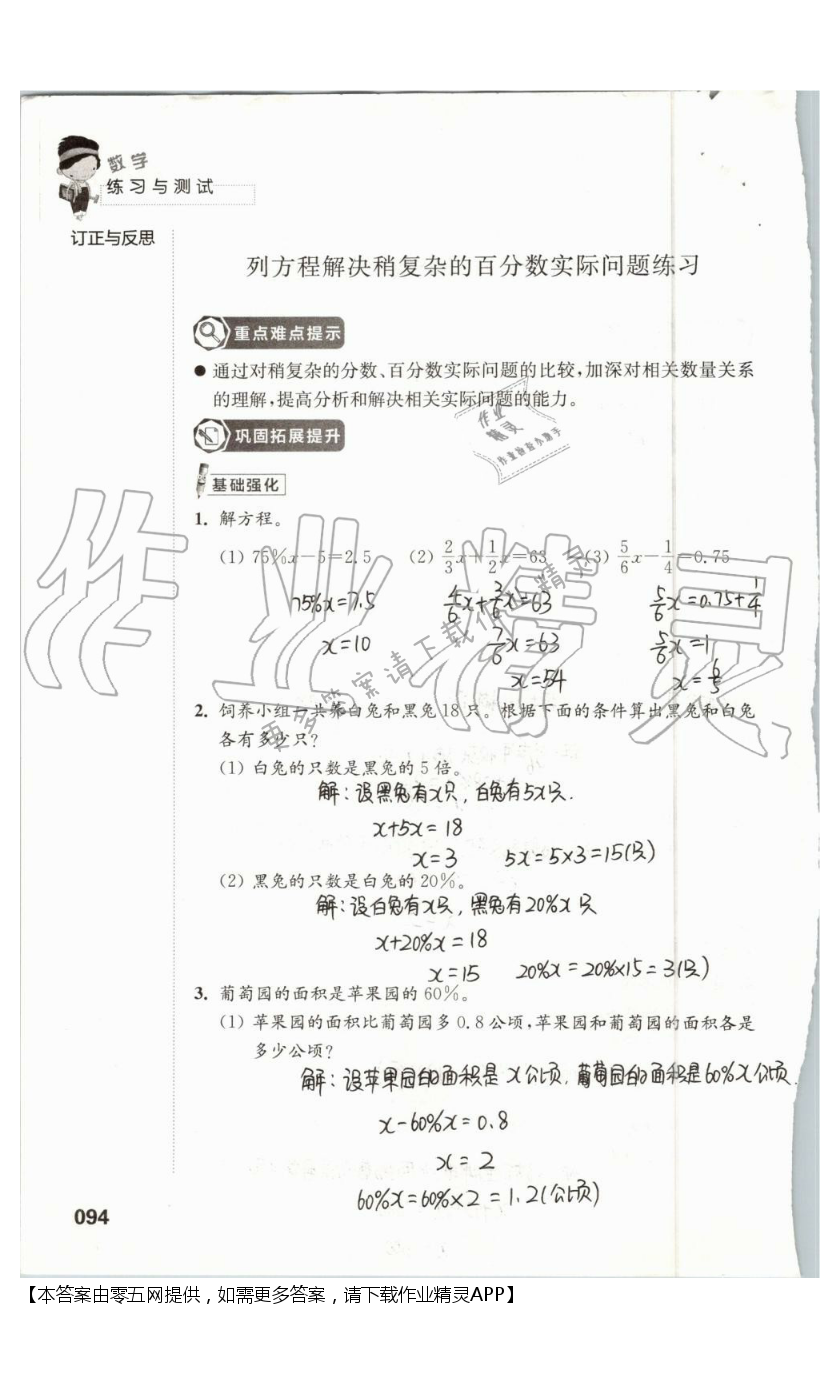 数学
练习与测试
订正与反思
列方程解决稍复杂的百分数实际问题练习
重点难点提示
● 通过对稍复杂的分数、百分数实际问题的比较,加深对相关数量关系
的理解,提高分析和解决相关实际问题的能力。
作业
精灵
作业检查小助手
巩固拓展提升
基础强化
1. 解方程。
(1) 75%x-5=2.5 (2) 2/3x+1/2x=63 (3) 5/6x-1/4=0.75
75%x=7.5 4/6x+3/6x=63 5/6x=0.75+1/4
x=10 7/6x=63 5/6x=1
x=54 x=6/5
作业精灵
更多答案请下载作业精灵
2. 饲养小组一共养白兔和黑兔18只。根据下面的条件算出黑兔和白兔
各有多少只?
(1) 白兔的只数是黑兔的5倍。
解:设黑兔有x只,白兔有5x只.
x+5x=18
x=3 5x=5×3=15(只)
(2) 黑兔的只数是白兔的20%。
解:设白兔有x只,黑兔有20%x只
x+20%x=18
x=15 20%x=20%×15=3(只)
3. 葡萄园的面积是苹果园的60%。
(1) 苹果园的面积比葡萄园多0.8公顷,苹果园和葡萄园的面积各是
多少公顷?
解:设苹果园的面积是x公顷,葡萄园的面积是60%x公顷.
x-60%x=0.8
x=2
60%x=60%×2=1.2(公顷)
094
【本答案由零五网提供，如需更多答案，请下载作业精灵APP】